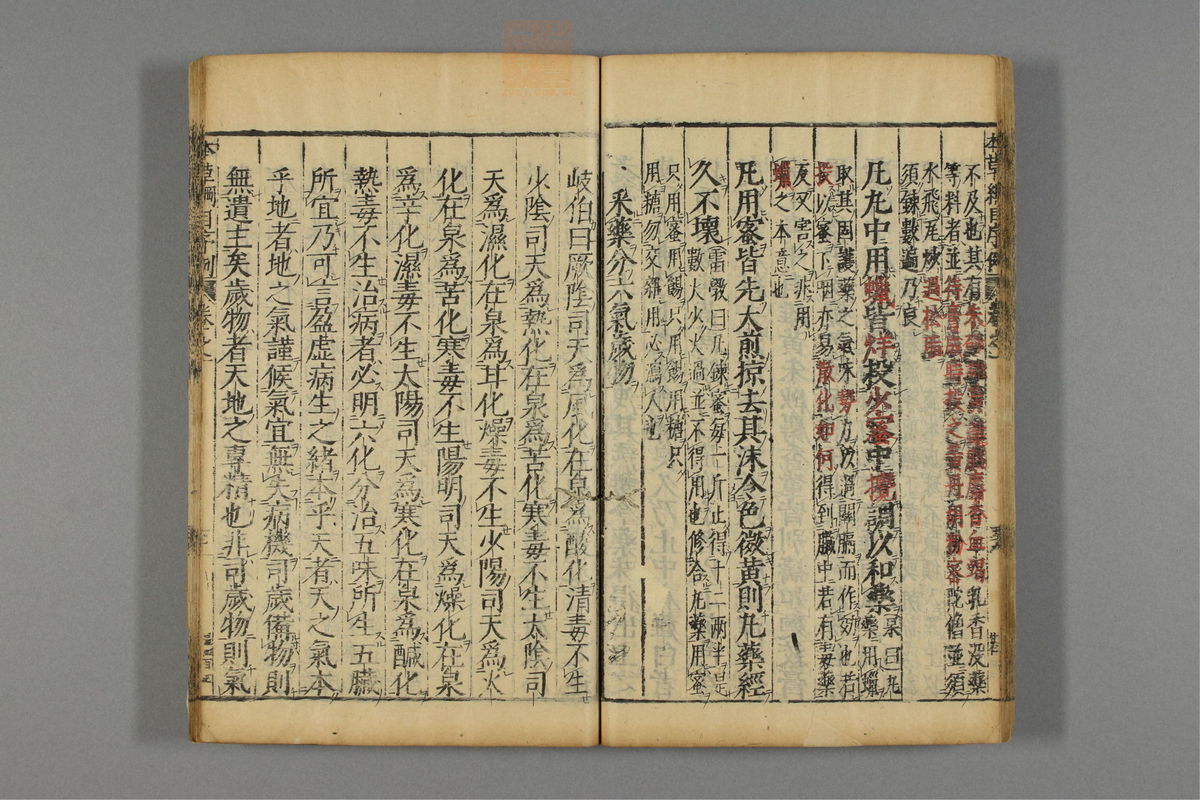 本草綱目序例
不及也其有
乳香沒藥
等料者並
陀僧並須
水飛尾煉
須鍊數遍乃良
凡丸中用蠟皆烊投少蜜中攪調以和藥
杲曰丸藥用蠟
取其固護藥之氣味勢力以過關膈而作效也若
投以蜜下咽亦易散化如何得到臟中若有毒藥
反又害之非用
蠟之本意也
凡用蜜皆先火煎掠去其沫令色微黃則丸藥經
久不壞
雷斅曰凡鍊蜜每一斤止得十二兩半是
數火少火過並不得用也修合丸藥用蜜
只用蜜用餳只用餳用糖只
用糖勿交雜用必瀉人也
采藥分六氣歲物
岐伯曰厥陰司天爲風化在泉爲酸化清毒不生
少陰司天爲熱化在泉爲苦化寒毒不生太陰司
天爲濕化在泉爲甘化燥毒不生少陽司天爲火
化在泉爲苦化寒毒不生陽明司天爲燥化在泉
爲辛化濕毒不生太陽司天爲寒化在泉爲醎化
熱毒不生治病者必明六化分治五味所生五臟
所宜乃可言盈虛病生之緒本乎天者天之氣本
乎地者地之氣謹候氣宜無失病機司歲備物則
無遺主矣歲物者天地之專精也非司歲物則氣
本草綱目序例